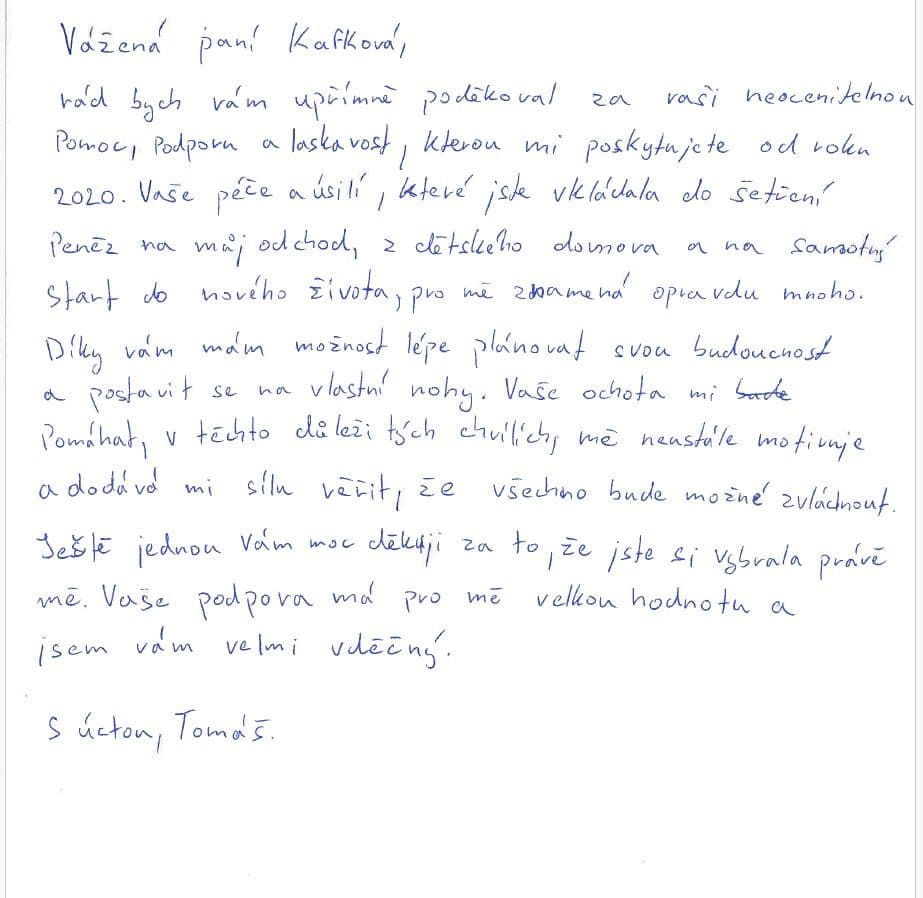 Vážená paní Kafková,
rád bych vám upřímně poděkoval za vaši neocenitelnou
Pomoc, Podporu a laskavost, kterou mi poskytujete od roku
2020. Vaše péče a úsilí, které jste vkládala do šetření
Peněz na můj odchod, z dětského domova a na samotný
Start do nového života, pro mě znamená opravdu mnoho.
Díky vám mám možnost lépe plánovat svou budoucnost
a postavit se na vlastní nohy. Vaše ochota mi
Pomáhat, v těchto důležitých chvílích, mě neustále motivuje
a dodává mi sílu věřit, že všechno bude možné zvládnout.
Ještě jednou Vám moc děkuji za to, že jste si vybrala právě
mě. Vaše podpora má pro mě velkou hodnotu a
jsem vám velmi vděčný.
S úctou, Tomáš.